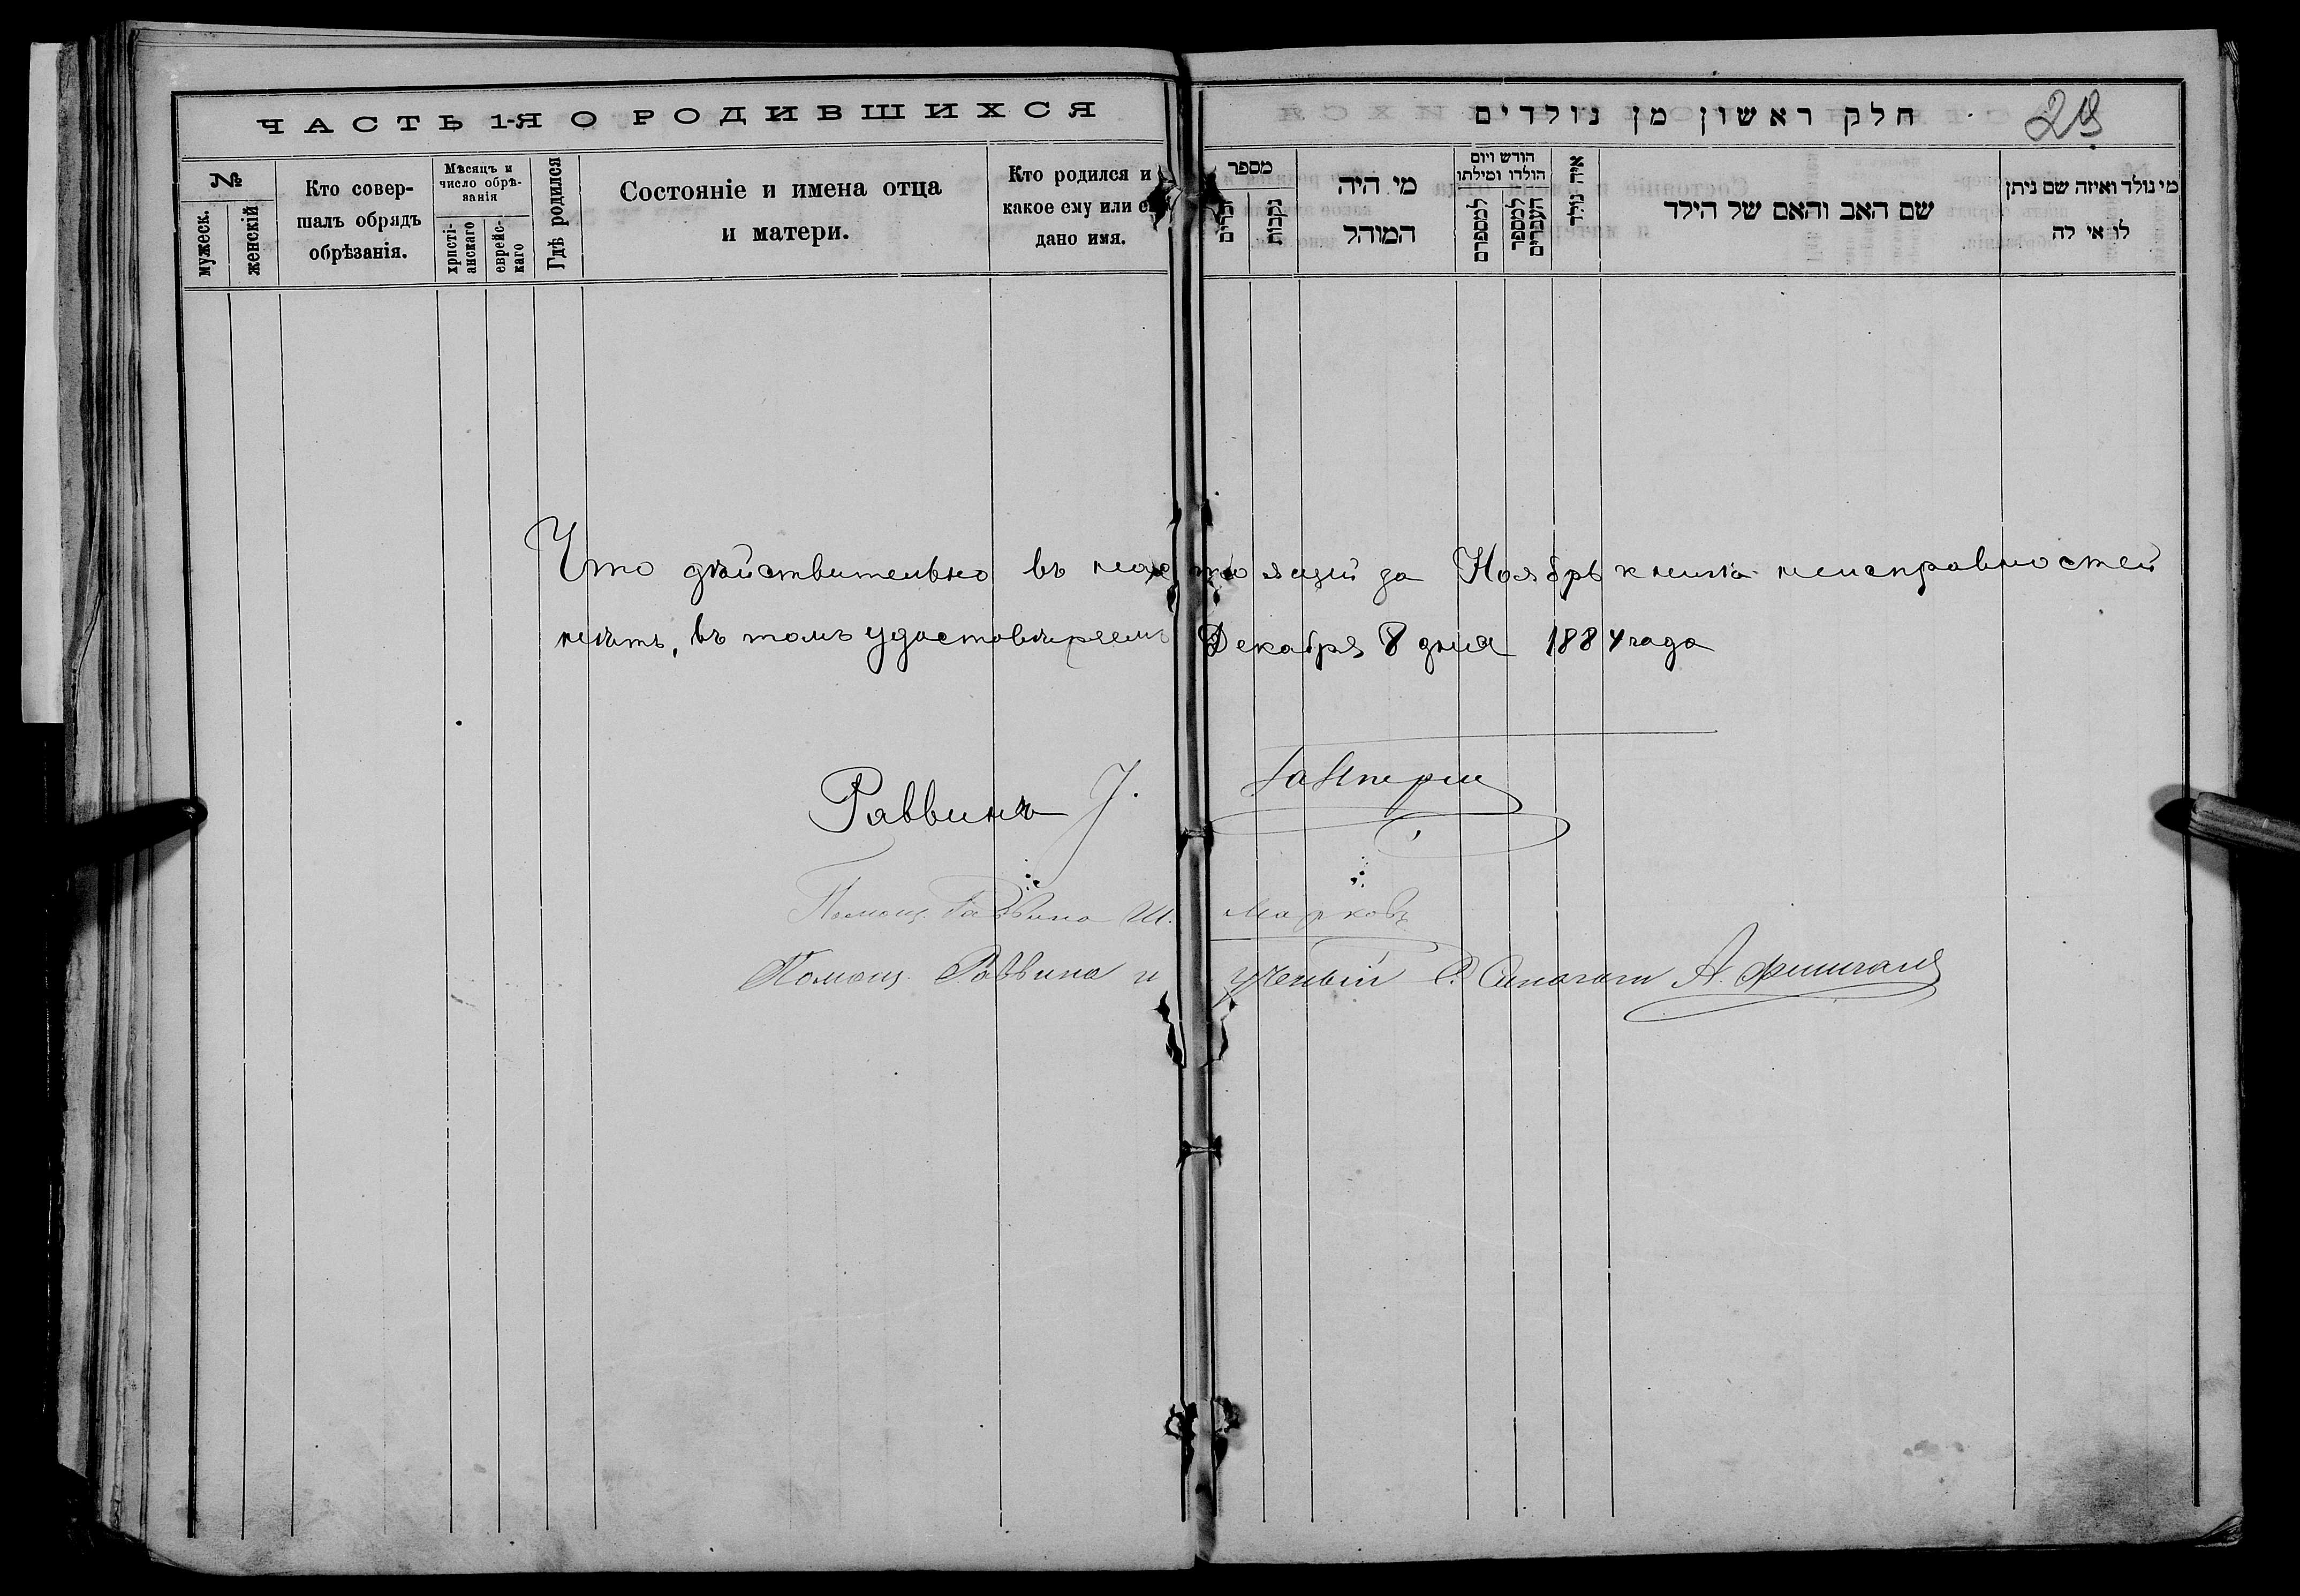 ЧАСТЬ 1-Я О РОДИВШИХСЯ
№
мужеск.
женскій
Кто совер-
шалъ обрядъ
обрѣзанія.
Мѣсяцъ и
число обрѣ-
занія
христі-
анскаго
еврейс-
каго
Гдѣ родился
Состояніе и имена отца
и матери.
Кто родился и
какое ему или
дано имя.
חלק ראשון מן נולדים
29
מספר
זכרים
נקבות
מי היה
המוהל
הודש ויום
הולדו ומילתו
למספרם
למספר
העברים
איה נולד
שם האב והאם של הילד
מי נולד ואיזה שם ניתן
לו אי לה
Что дѣйствительно въ настоящей за Ноябрь книгѣ неисправностей
нѣтъ, въ томъ удостовѣряемъ Декабря 8 дня 1884 года
Раввинъ
Помощ. Раввина Ш. Марковъ
Помощ. Раввина и ученый А.